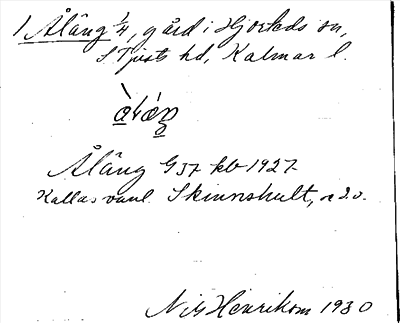 1 Ålång 1/4, gård i Hjorteds sn,
S Tjusts hd, Kalmar l.
Ålång G 57 kb 1927
Kallas vanl. Skinnshult, se d.o.
Nils Henrikson 1930